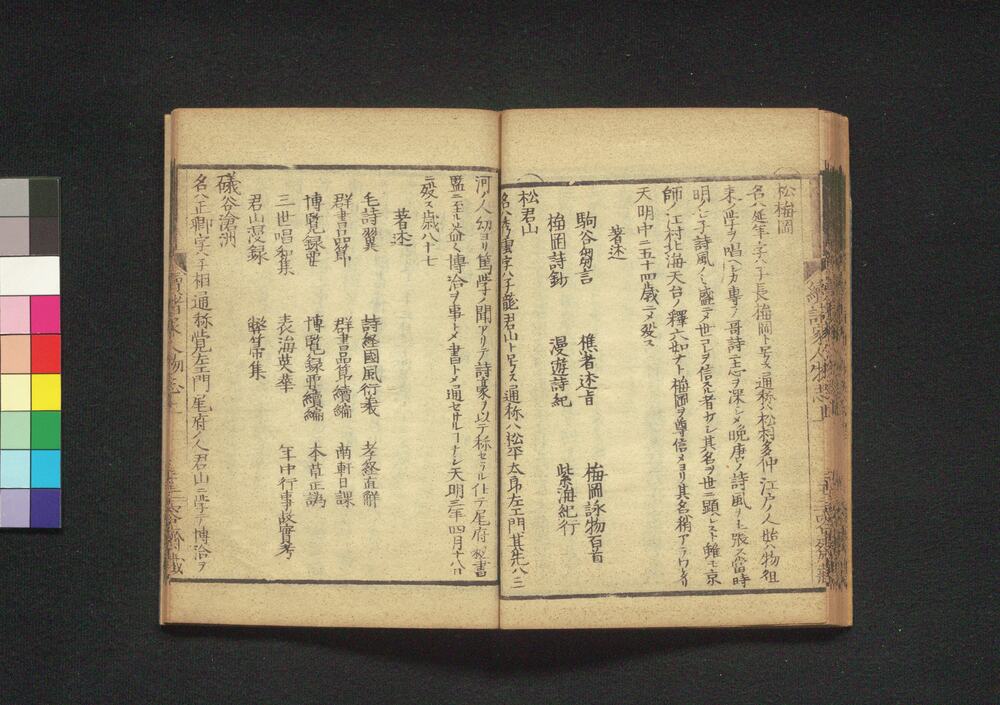 松梅岡
名ハ延年字ハ子長梅岡ト号ス通称ハ松村多仲江戸ノ人始ハ物徂
来ノ学ヲ唱ヘシカ専ラ哥詩ニ志ヲ深シメ晩唐ノ詩風ヲ主張ス當時
明之子詩風ノミ盛ニメ世コレヲ信スル者ナシ其名ヲ世ニ顕レスト雖モ京
師ノ江村北海天台ノ釋六如ナト梅岡ヲ尊信メヨリ其名稍アラワレリ
天明中ニ五十四歳ニメ歿ス
著述
駒谷芻言 樵者述旨 梅岡詠物百首
梅岡詩鈔 漫遊詩紀 紫海紀行
松君山
名ハ秀雲字ハ子龍君山ト号ス通称ハ松平太郎左エ門其先ハ三
河ノ人幼ヨリ篤学ノ聞アリテ詩豪ヲ以テ称セラル仕テ尾府ノ秘書
監ニ至ル益〻博洽ヲ事トメ書トメ通セサルコナシ天明三年四月十八日
ニ歿ス歳八十七
著述
毛詩翼 詩経國風衍義 孝経直解
群書品節 群書品節續編 南軒日課
博覧録要 博覧録要續編 本草正譌
三世唱和集 表海英華 年中行事故實考
君山漫録 幣帚集
磯谷滄洲
名ハ正卿字ハ子相通称覚左エ門尾府ノ人君山ニ学テ博洽ヲ
續諸家人物志上